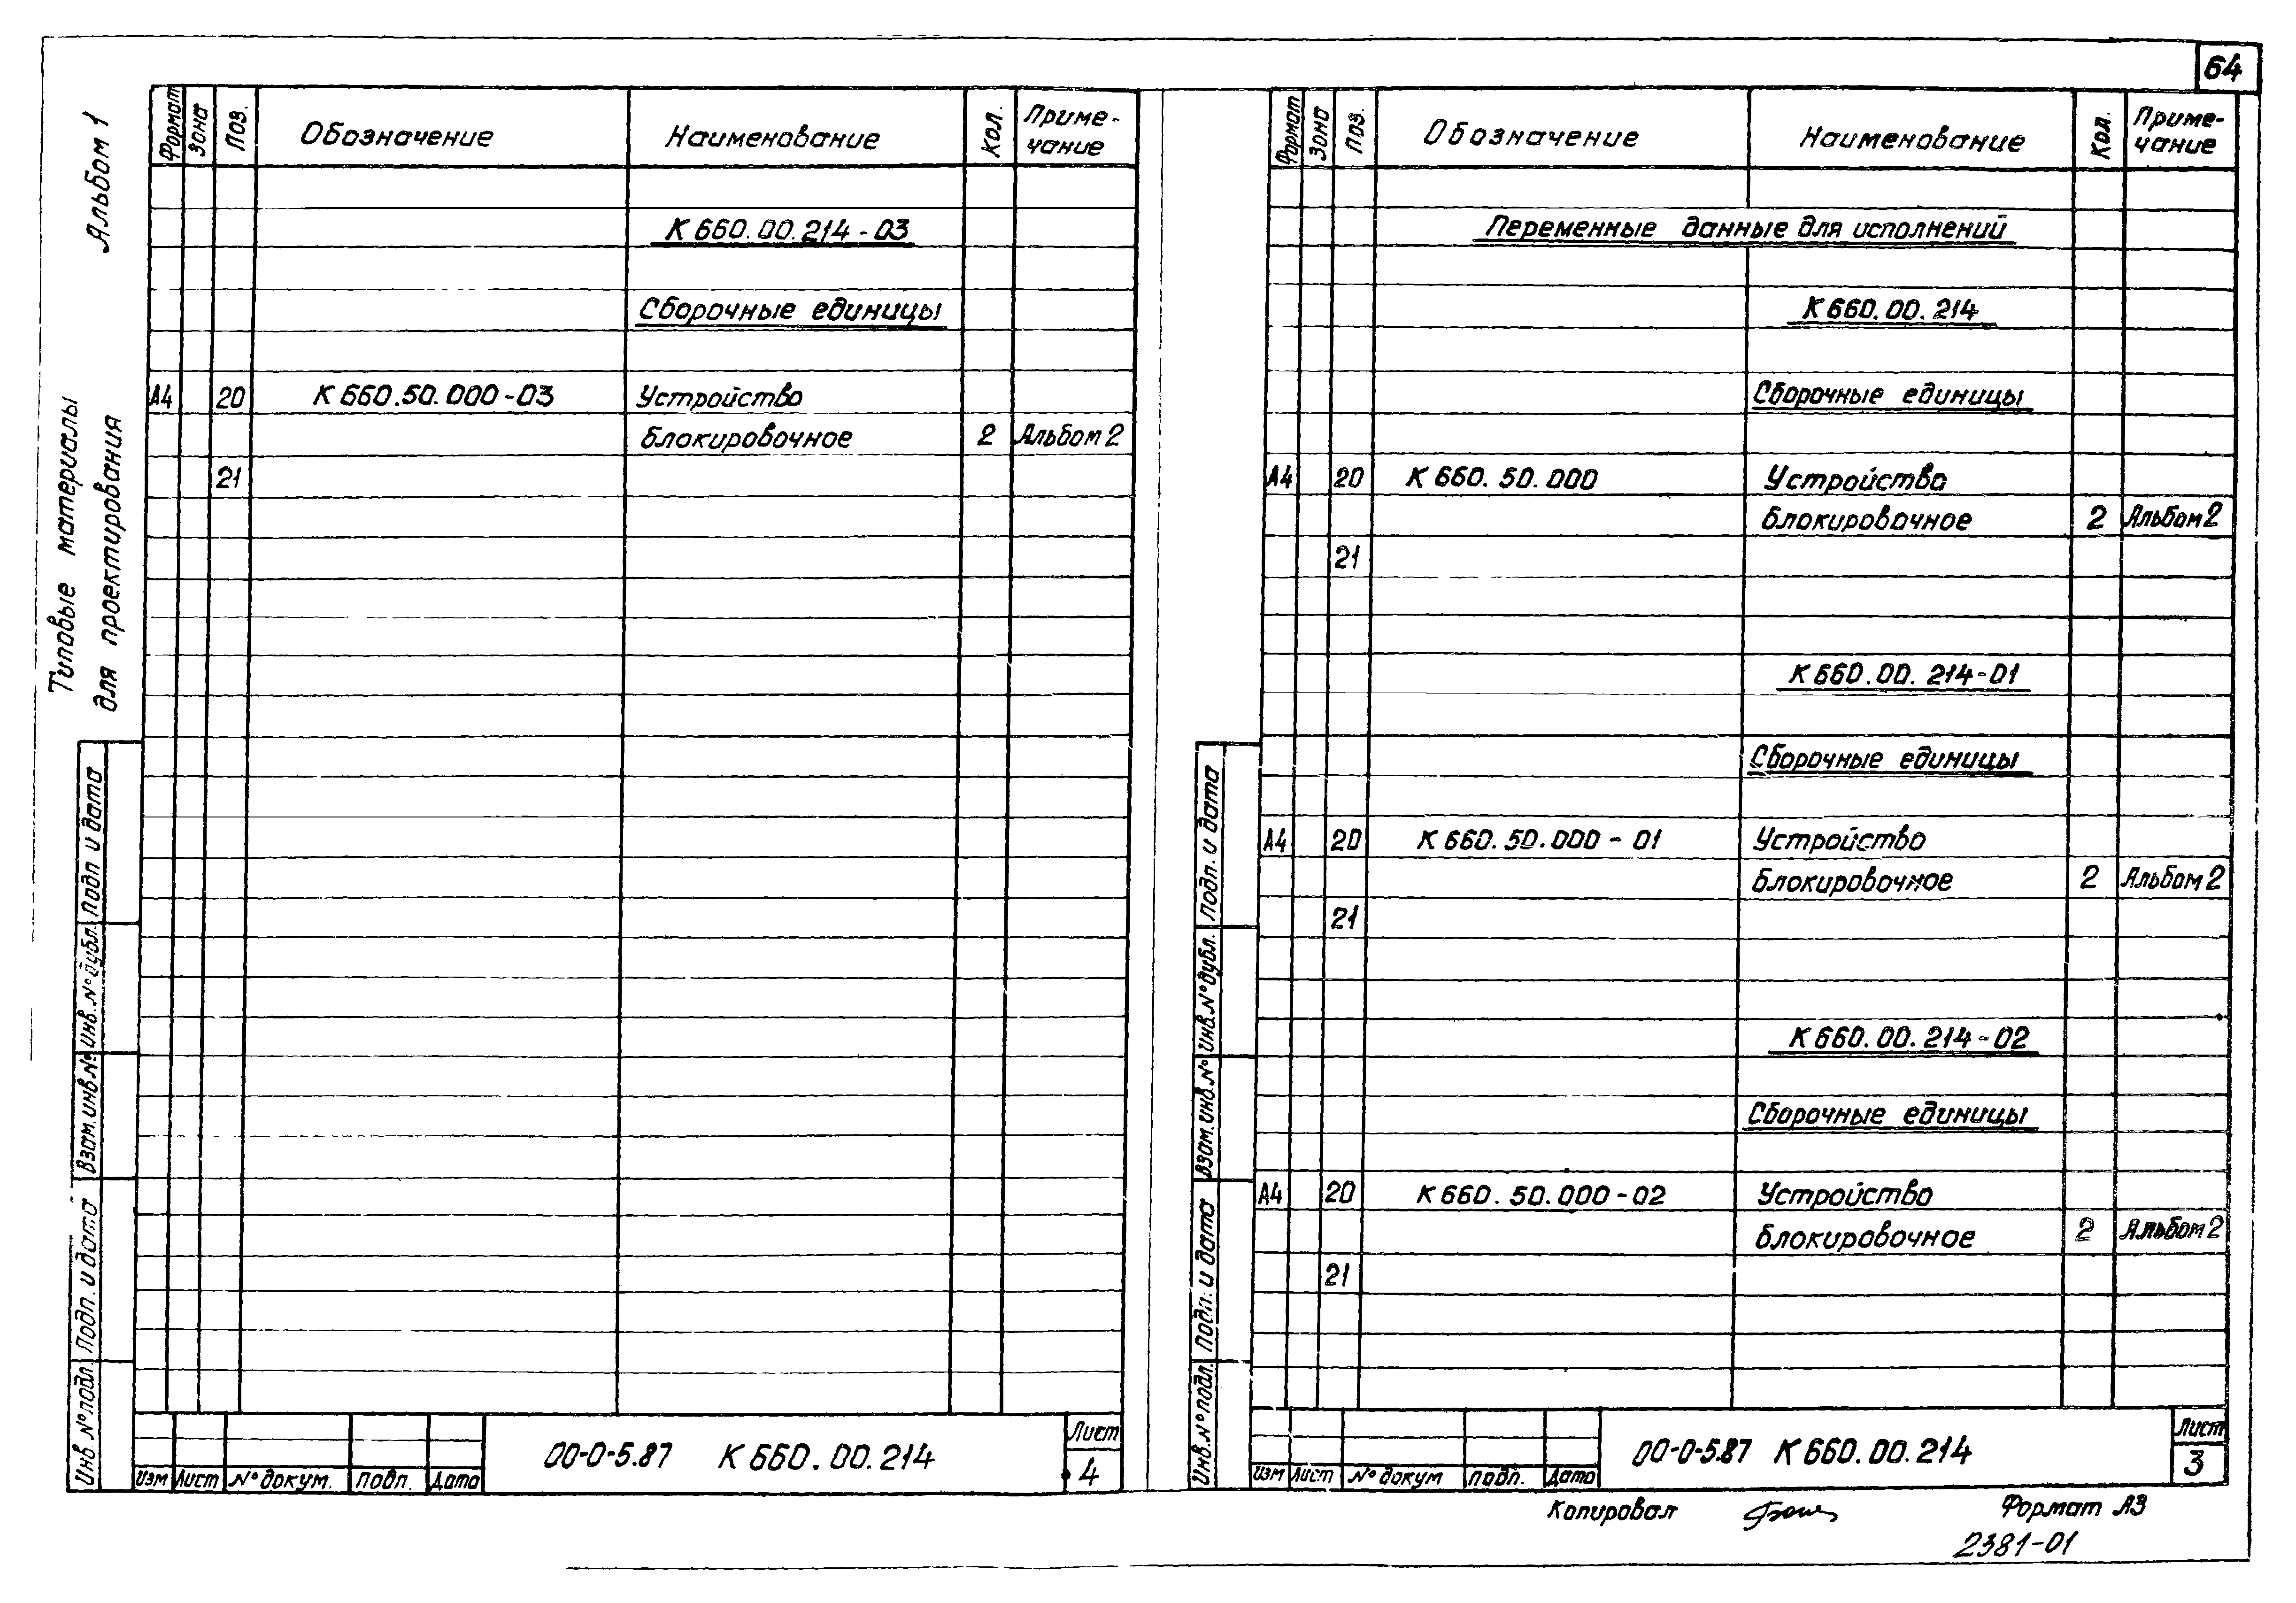 64
Альбом 1
Типовые материалы
для проектирования
Формат Зона Поз. Обозначение Наименование Кол. Приме-
чание
К 660.00.214-03
Сборочные единицы
А4 20 К 660.50.000-03 Устройство
блокировочное 2 Альбом 2
21
Инв. № подл. Подп. и дата Взам. инв. № Инв. № дубл. Подп и дата
Изм Лист № докум. подп. Дата
00-0-5.87 К 660.00.214
Лист
4
Формат Зона Поз. Обозначение Наименование Кол. Приме-
чание
Переменные данные для исполнений
К 660.00.214
Сборочные единицы
А4 20 К 660.50.000 Устройство
блокировочное 2 Альбом 2
21
К 660.00.214-01
Сборочные единицы
А4 20 К 660.50.000-01 Устройство
блокировочное 2 Альбом 2
21
К 660.00.214-02
Сборочные единицы
А4 20 К 660.50.000-02 Устройство
блокировочное 2 Альбом 2
21
Инв. № подл. Подп. и дата Взам. инв. № Инв. № дубл. Подп. и дата
Изм Лист № докум подп. Дата
00-0-5.87 К 660.00.214
Лист
3
Копировал Формат А3
2381-01